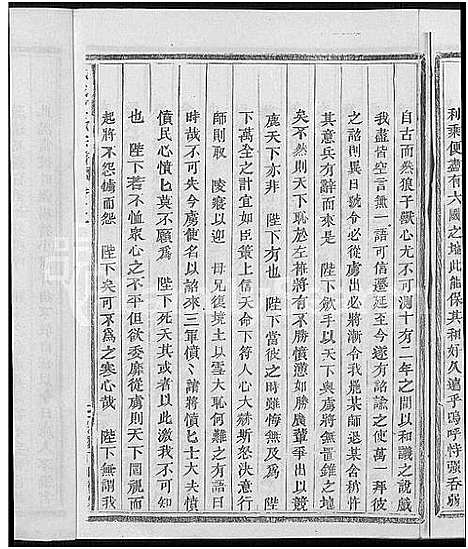 利乘便盡有大國之地此能保其和好久遠乎嗚呼恃强吞弱
自古而然狼子獸心尤不可測十有二年之間以和議之說戲
我盡皆空言無一語可信遷延至今遂有詔諭之使萬一拜彼
之詔則異日號令必從虜出必將令我易某師退某舍稍
其意兵有辭而來是　陛下歛手以天下與虜將無噩錐之地
矣不然則天下恥於左袵將有不勝憤怒起以競
鹿天下亦非　陛下有也　陛下當彼之時雖悔無及爲　陛
下萬全之計宜如臣策上信天命下符人心大赫斯怒決意行
師則取　陵寢以迎　母兄復境上以雪大恥何難之有方此
時哉不可失今虜使名以詔來三軍憤〻諸將憤匕士大夫憤
憤民心憤匕莫不願爲　陛下死天其或者以此激我不可知
也　陛下若不恤衆心之不平但欲委靡從虜則天下圜視而
起將不怨虜而怨　陛下矣可不爲之寒心哉　陛下無謂我